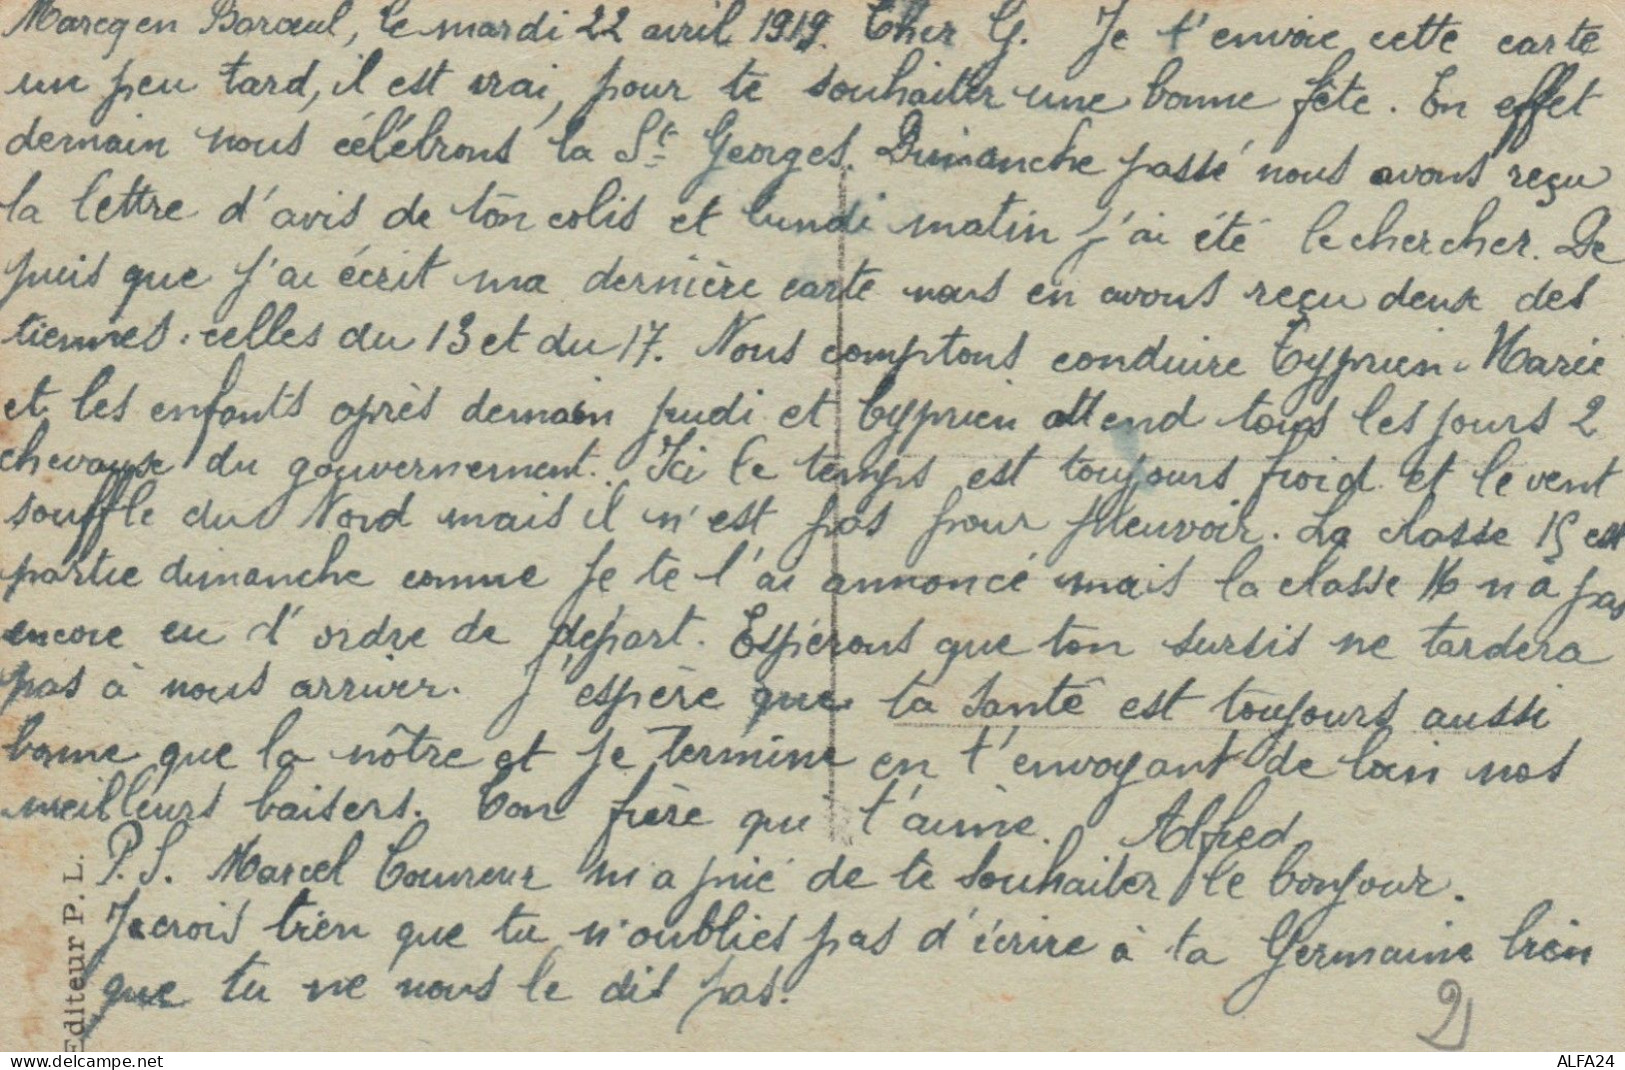 Marcq en Baroeul, le mardi 22 avril 1919. Cher G. Je t'envoie cette carte
un peu tard, il est vrai, pour te souhaiter une bonne fête. En effet
demain nous célébrons la St Georges. Dimanche passé nous avons reçu
la lettre d'avis de ton colis et lundi matin j'ai été le chercher. De
puis que j'ai écrit ma dernière carte nous en avons reçu deux des
tiennes. celles du 13 et du 17. Nous comptons conduire Cyprien. Marie
et les enfants après demain jeudi et Cyprien attend tous les jours 2
chevaux du gouvernement. Ici le temps est toujours froid et le vent
souffle du Nord mais il n'est pas pour pleuvoir. La classe 15 est
partie dimanche comme je te l'ai annoncé mais la classe 16 n'a pas
encore eu d'ordre de départ. Espérons que ton sursis ne tardera
pas à nous arriver. J'espère que ta santé est toujours aussi
bonne que la nôtre et je termine en t'envoyant de loin nos
meilleurs baisers. Ton frère qui t'aime. Alfred
P.S. Marcel m'a prié de te souhaiter le bonjour.
Je crois bien que tu n'oublies pas d'écrire à ta Germaine bien
que tu ne nous le dis pas.
2
Editeur P. L.
delcampe.net
ALFA24